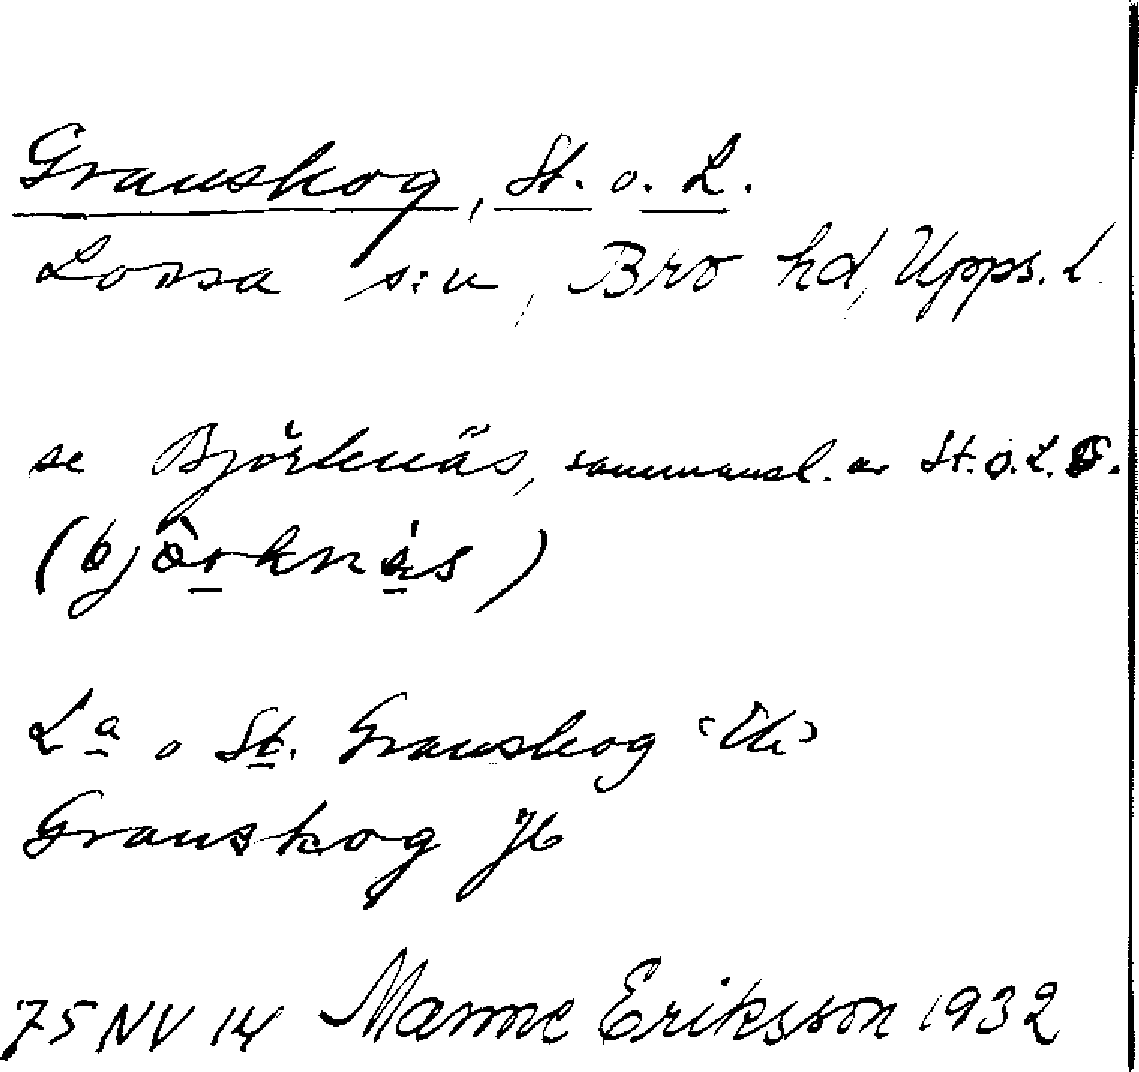 Granskog, St. o. L.
Lossa s:n, Bro hd, Upps. l.
se Björknäs, sammansl. av St. o. L. G.
(bjö̂rknä́s)
La o St. Granskog
Granskog Jb
75 NV 14 Manne Eriksson 1932